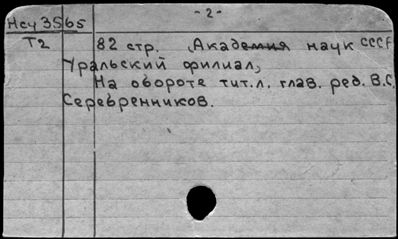 - 2 -
Нсу 3565
Т2 82 стр. Академия наук СССР
Уральский филиал,
На обороте тит.л. глав. ред. В.С.
Серебренников.